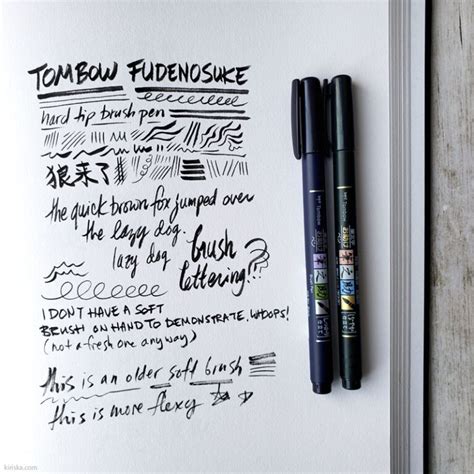 TOMBOW FUDENOSUKE
hard tip brush pen
狼来了
the quick brown fox jumped over
the lazy dog.
lazy dog
brush
lettering!!?
I DON'T HAVE A SOFT
BRUSH ON HAND TO DEMONSTRATE, WHOPS!
(not a fresh one anyway)
this is an older soft brush
this is more flexy
kiriska.com